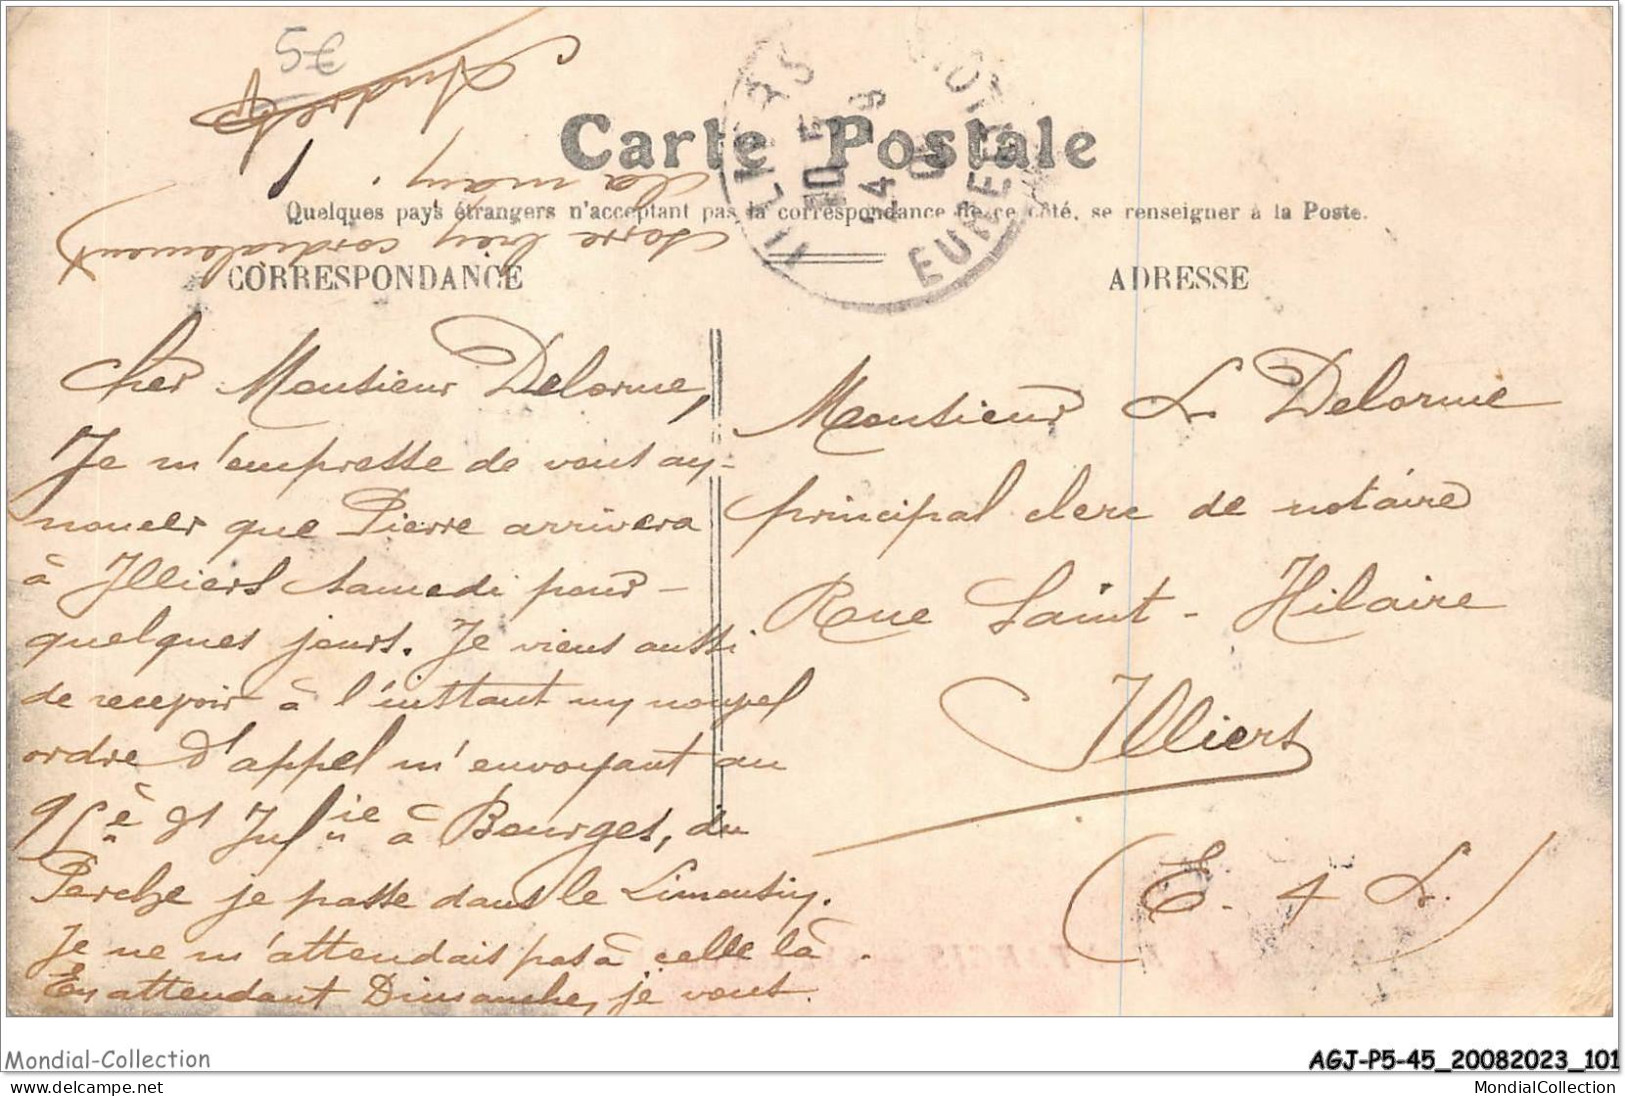 5€
Carte Postale
Quelques pays étrangers n'acceptant pas la correspondance de ce côté, se renseigner à la Poste.
CORRESPONDANCE
ADRESSE
Cher Monsieur Delorme,
Je m'empresse de vous an-
noncer que Pierre arrivera
à Illiers samedi pour
quelques jours. Je viens aussi
de recevoir à l'instant un nouvel
ordre d'appel m'envoyant au
95è d'Infie à Bourges, du
Perche je passe dans le Limousin.
Je ne m'attendais pas à celle là.
En attendant Dimanche, je vous
serre bien cordialement
la main.
André
Monsieur L. Delorme
principal clerc de notaire
Rue Saint-Hilaire
Illiers
(E. & L.)
EURE
Mondial-Collection
AGJ-P5-45_20082023_101
mondial-collection.delcampe.net
MondialCollection